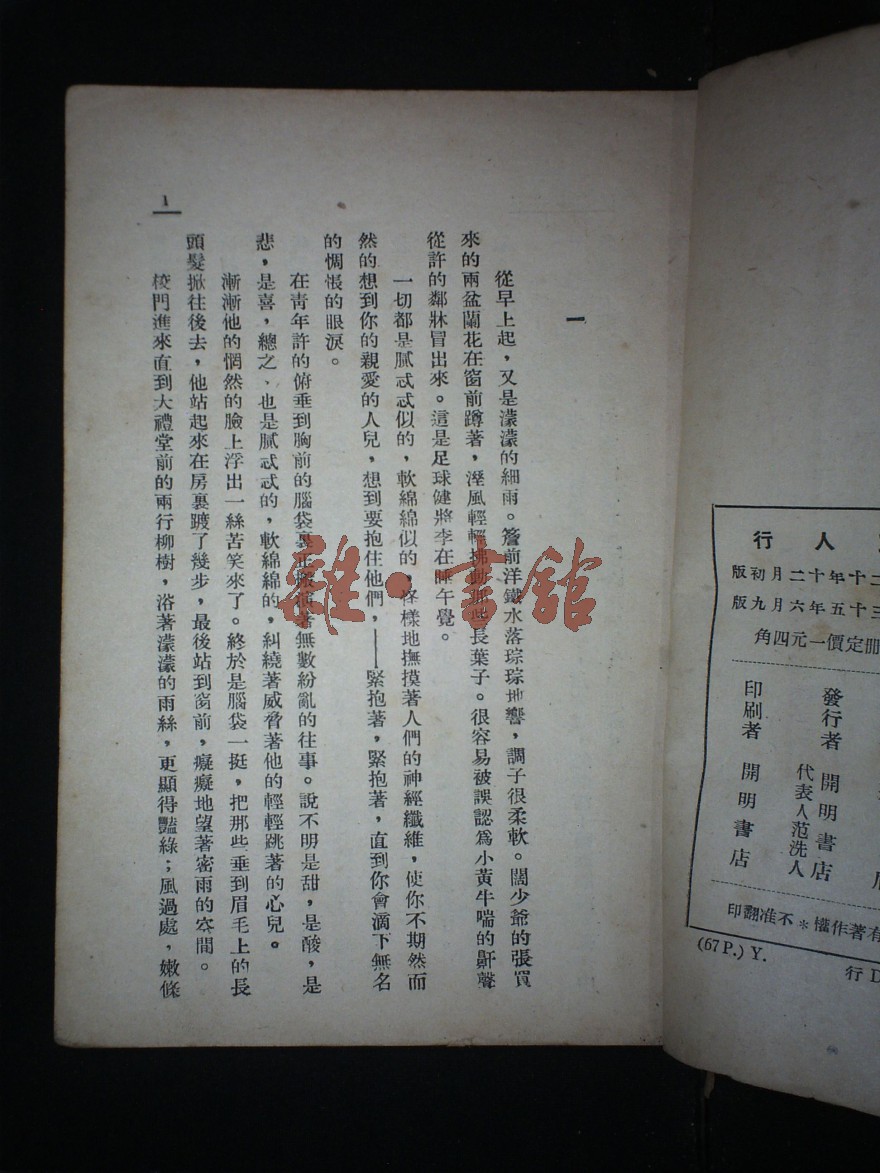 人行
二十年十二月初版
三十五年六月九版
冊定價一元四角
發行者 開明書店
代表人范洗人
印刷者 開明書店
有著作權*不准翻印
(67 P.) Y.
行 D
一
從早上起，又是濛濛的細雨。簷前洋鐵水落琮琮地響，調子很柔軟。闊少爺的張買
來的兩盆蘭花在窗前蹲著，溼風輕輕拂動那些長葉子。很容易被誤認爲小黃牛喘的鼾聲
從許的鄰牀冒出來。這是足球健將李在睡午覺。
一切都是膩忒忒似的，軟綿綿似的，怪樣地撫摸著人們的神經纖維，使你不期然而
然的想到你的親愛的人兒，想到要抱住他們，——緊抱著，緊抱著，直到你會滴下無名
的惆悵的眼淚。
在青年許的俯垂到胸前的腦袋裏正搬演著無數紛亂的往事。說不明是甜，是酸，是
悲，是喜，總之、也是膩忒忒的，軟綿綿的，糾繞著威脅著他的輕輕跳著的心兒。
漸漸他的惘然的臉上浮出一絲苦笑來了。終於是腦袋一挺，把那些垂到眉毛上的長
頭髮掀往後去，他站起來在房裏踱了幾步，最後站到窗前，癡癡地望著密雨的空間。
校門進來直到大禮堂前的兩行柳樹，浴著濛濛的雨絲，更顯得豔綠；風過處，嫩條
1
雜·書館